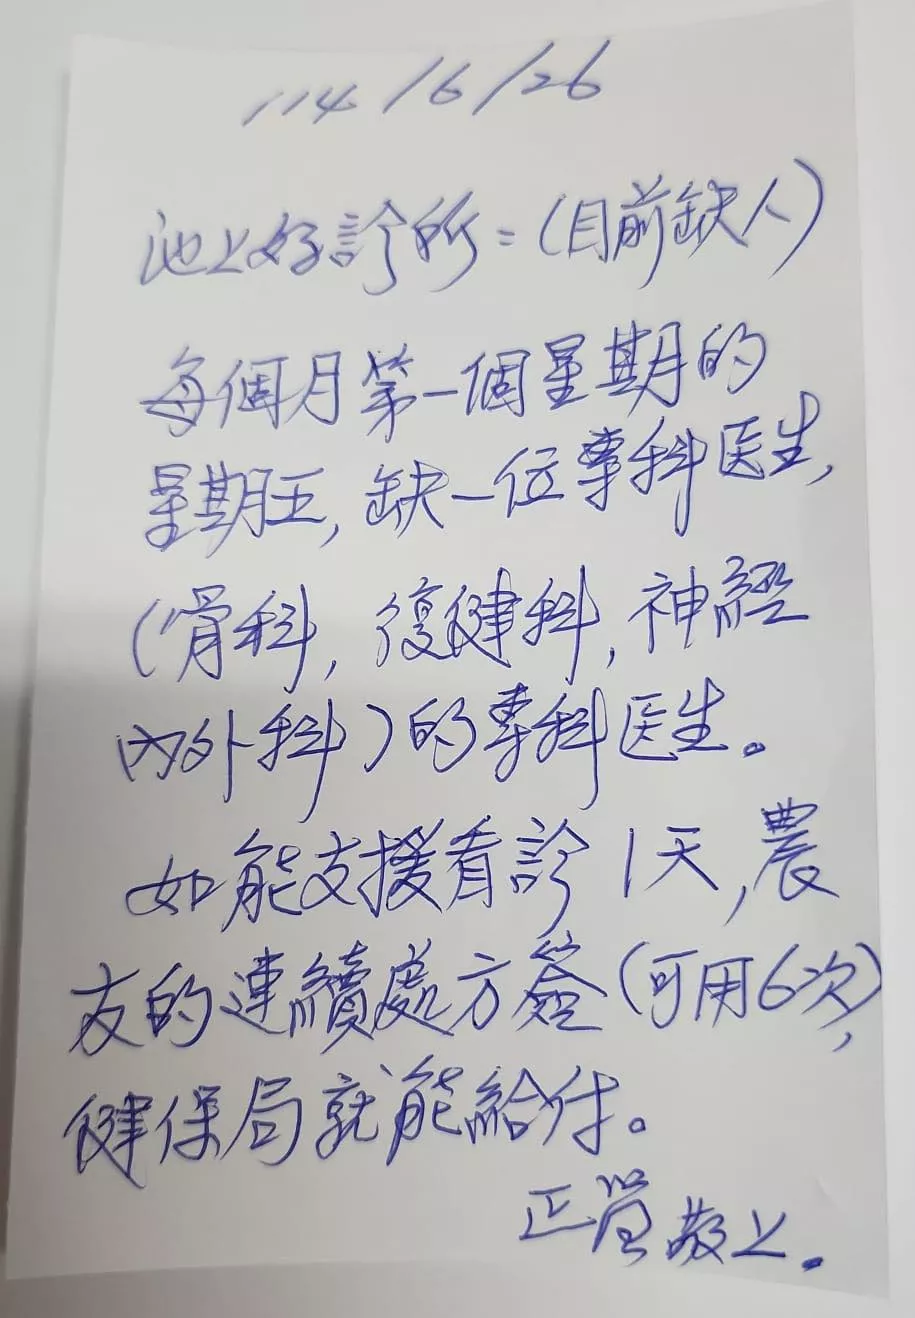 114/6/26
池上好診所:(目前缺人)
每個月第一個星期的
星期五,缺一位專科医生,
(骨科,復健科,神經
內外科)的專科医生。
如能支援看診1天,農
友的連續處方簽(可用6次),
健保局就能給付。
正 敬上.